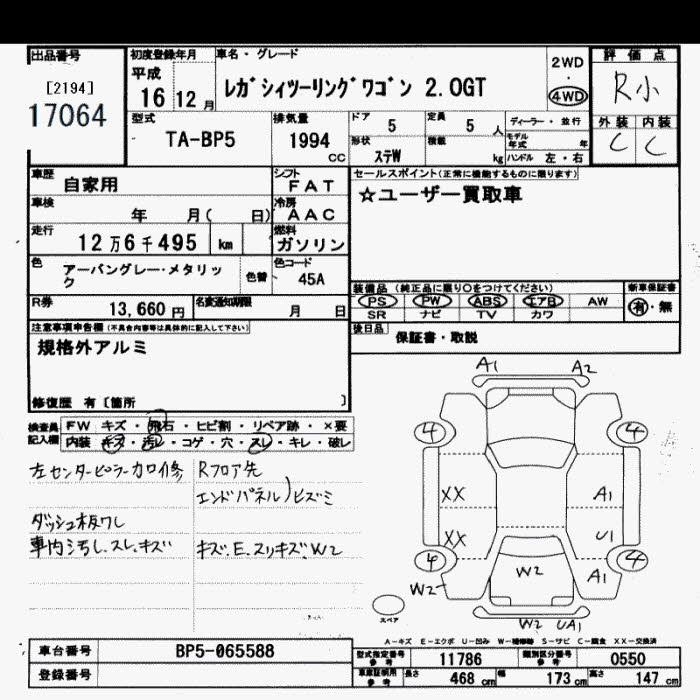 出品番号
[2194]
17064
初度登録年月
平成
16 12月
車名・グレード
レガシィツーリングワゴン 2.0GT
2WD
・
4WD
評価点
R小
外装 内装
C C
型式
TA-BP5
排気量
1994
CC
ドア 5
定員 5 人
ディーラー・並行
形状
ステW
積載
kg
モデル年式 年
ハンドル 左・右
車歴
自家用
シフト
FAT
車検
年 月( 日)
冷房
AAC
走行
12万6千495 km
燃料
ガソリン
色
アーバングレー・メタリック
色替
色コード
45A
R券
13,660円
名変通知期限
月 日
セールスポイント(正常に機能するものに限ります)
☆ユーザー買取車
装備品(純正品に限り○をつけてください)
PS PW ABS エアB AW
SR ナビ TV カワ
新車保証書
有・無
後日品
保証書・取説
注意事項申告欄(不具合内容等は具体的に記入して下さい)
規格外アルミ
修復歴 有〔箇所 〕
検査員記入欄
FW キズ・飛石・ヒビ割・リペア跡・×要
内装 キズ・汚レ・コゲ・穴・スレ・キレ・破レ
左センターピラー カロ修
Rフロア先
エンドパネル)ヒズミ
ダッシュ板ワレ
車内汚レ.スレ.キズ
キズ.E.スリキズ.W2
A1 A2
4 4
XX A1
XX U1
4 4
W2 A1
W2
W2 UA1
スペア
A-キズ E-エクボ U-凹み W-補修跡 S-サビ C-腐食 XX-交換済
車台番号
BP5-065588
登録番号
型式指定番号 参考
11786
類別区分番号 参考
0550
車庫証明用 参考
長さ 468 cm
幅 173 cm
高さ 147 cm